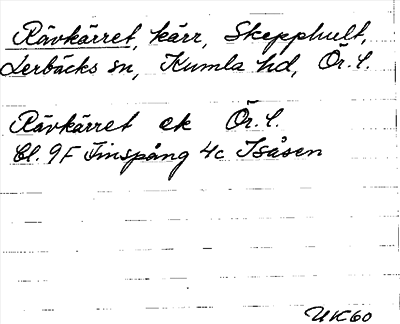 Rävkärret, kärr, Skepphult,
Lerbäcks sn, Kumla hd, Ör. l.
Rävkärret ek Ör. l.
Bl. 9F Finspång 4c Isåsen
UK60